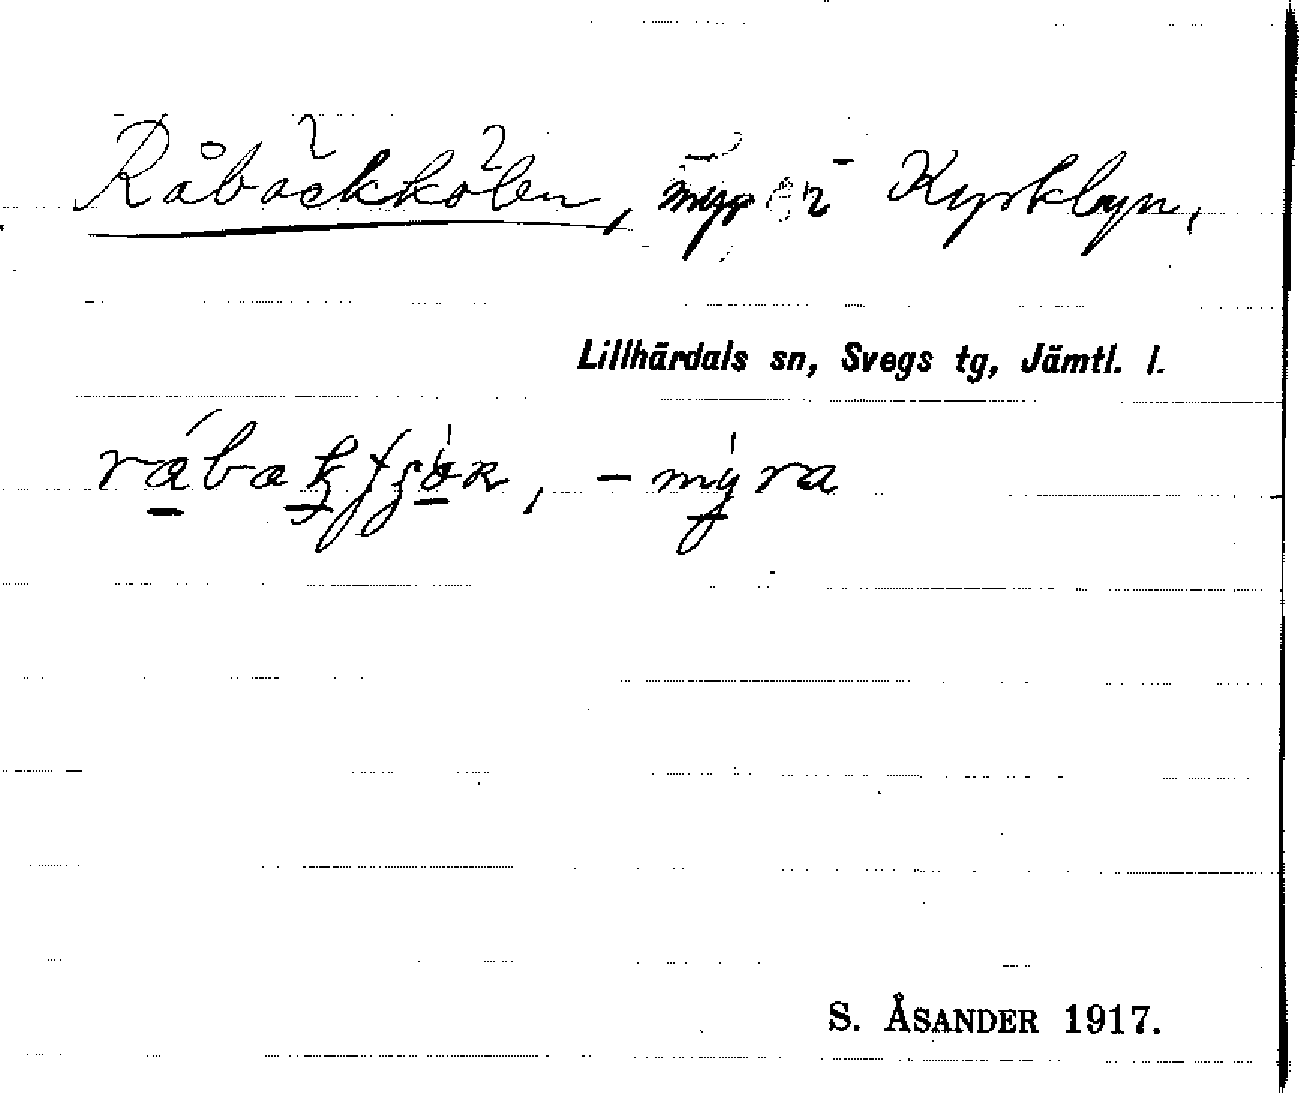 Råbäckkölen, myr i Kyrkbyn,
Lillhärdals sn, Svegs tg, Jämtl. l.
S. ÅSANDER 1917.